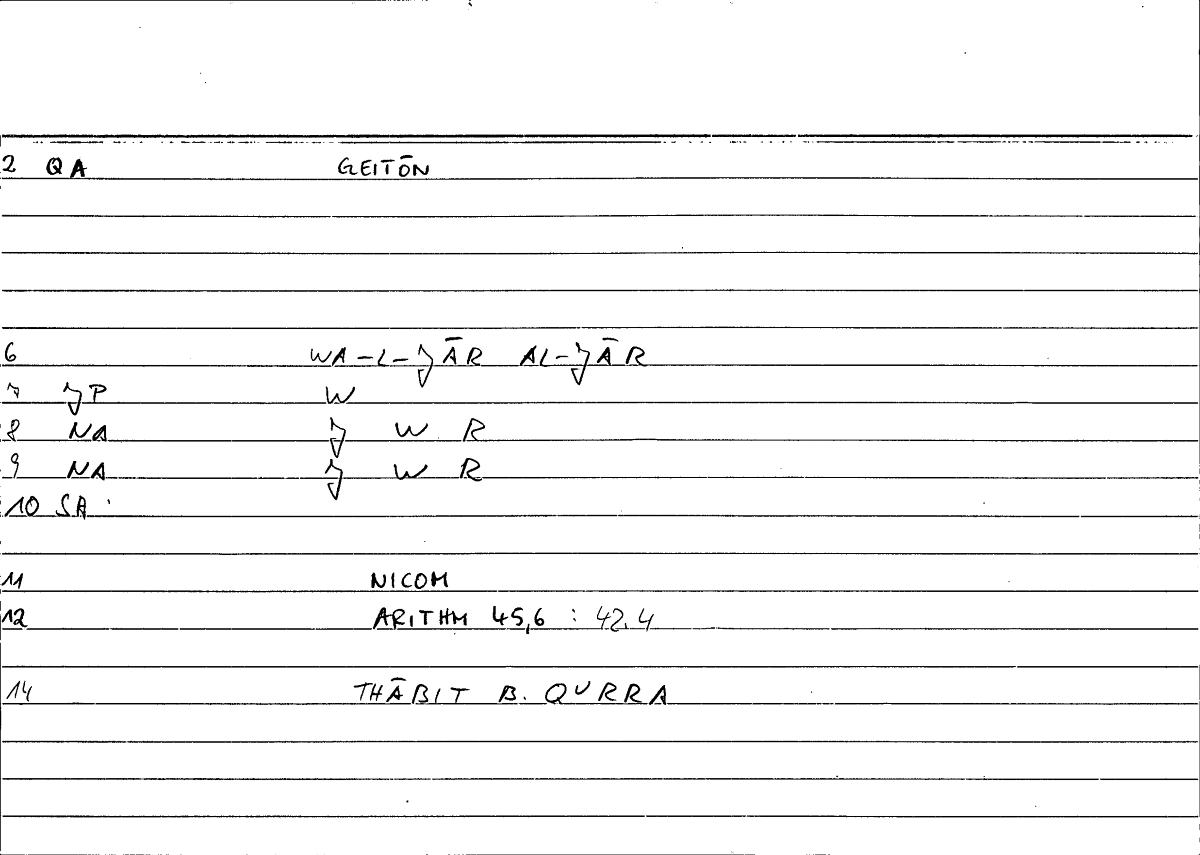 2 QA GEITŌN
6 WA-L-JĀR AL-JĀR
7 JP W
8 NA J W R
9 NA J W R
10 SA
11 NICOM
12 ARITHM 45,6 : 42.4
14 THĀBIT B. QURRA